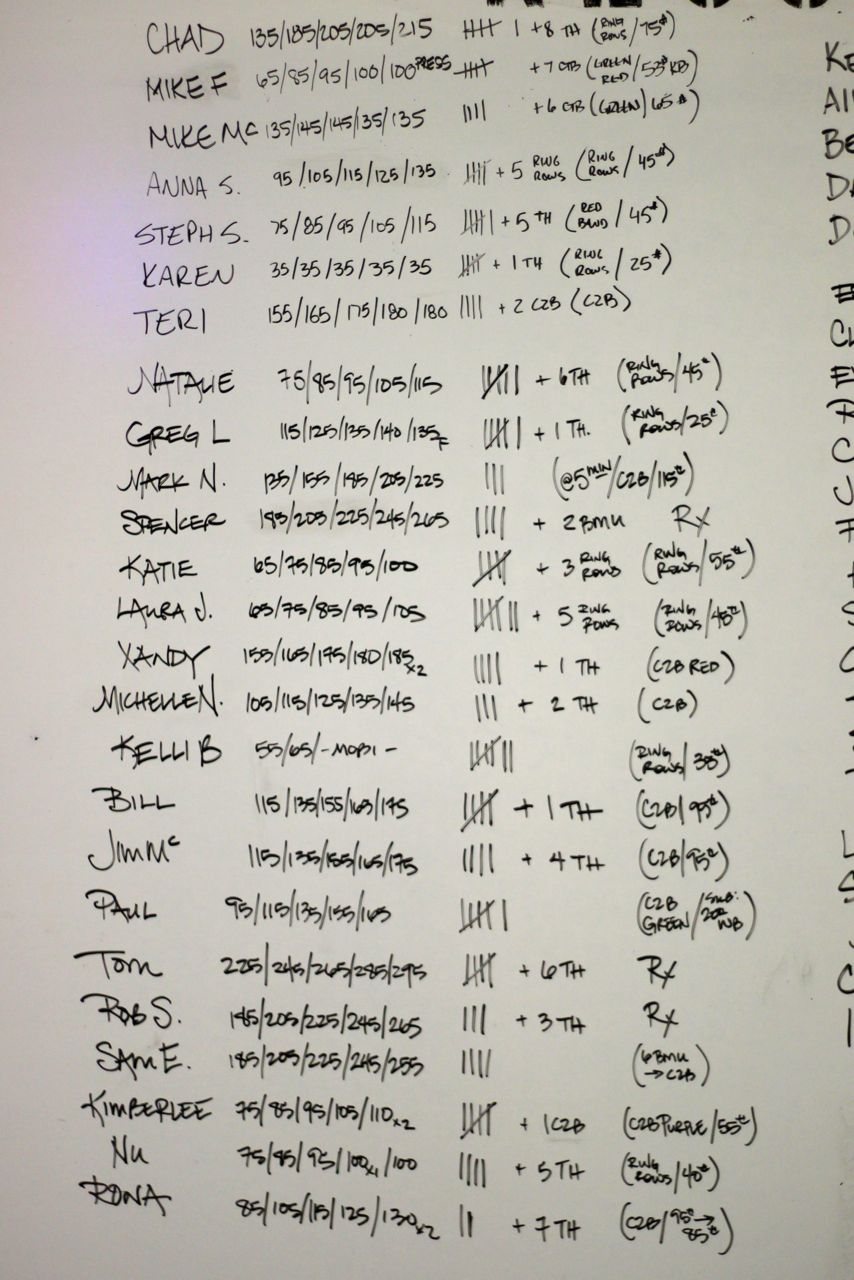 CHAD 135/185/205/205/215 |||| | + 8 TH (RING ROWS/75#)
MIKE F 65/85/95/100/100 PRESS |||| + 7 CTB (GREEN RED/53# KB)
MIKE Mc 135/145/145/135/135 |||| + 6 CTB (GREEN) 65#)
ANNA S. 95/105/115/125/135 |||| + 5 RING ROWS (RING ROWS/45#)
STEPH S. 75/85/95/105/115 |||| | + 5 TH (RED BAND/45#)
KAREN 35/35/35/35/35 |||| + 1 TH (RING ROWS/25#)
TERI 155/165/175/180/180 |||| + 2 C2B (C2B)
NATALIE 75/85/95/105/115 |||| | + 6 TH (RING ROWS/45#)
GREG L 115/125/135/140/135F |||| | + 1 TH. (RING ROWS/25#)
MARK N. 135/155/185/205/225 ||| (@5 MIN/C2B/115#)
SPENCER 185/205/225/245/265 |||| + 2 BMU RX
KATIE 65/75/85/95/100 |||| + 3 RING ROWS (RING ROWS/55#)
LAURA J. 65/75/85/95/105 |||| || + 5 RING ROWS (RING ROWS/45#)
XANDY 155/165/175/180/185 x2 |||| + 1 TH (C2B RED)
MICHELLE N. 105/115/125/135/145 ||| + 2 TH (C2B)
KELLI B 55/65/-MOBI- |||| || (RING ROWS/35#)
BILL 115/135/155/165/175 |||| + 1 TH (C2B/95#)
JIM Mc 115/135/155/165/175 |||| + 4 TH (C2B/95#)
PAUL 95/115/135/155/165 |||| | (C2B GREEN/ 20# WB)
TOM 225/245/265/285/295 |||| + 6 TH RX
ROB S. 185/205/225/245/265 ||| + 3 TH RX
SAM E. 185/205/225/245/255 |||| (6 BMU → C2B)
KIMBERLEE 75/85/95/105/110 x2 |||| + 1 C2B (C2B PURPLE/55#)
NU 75/85/95/100 x1/100 |||| + 5 TH (RING ROWS/40#)
RONA 85/105/115/125/130 x2 || + 7 TH (C2B/95# → 85#)